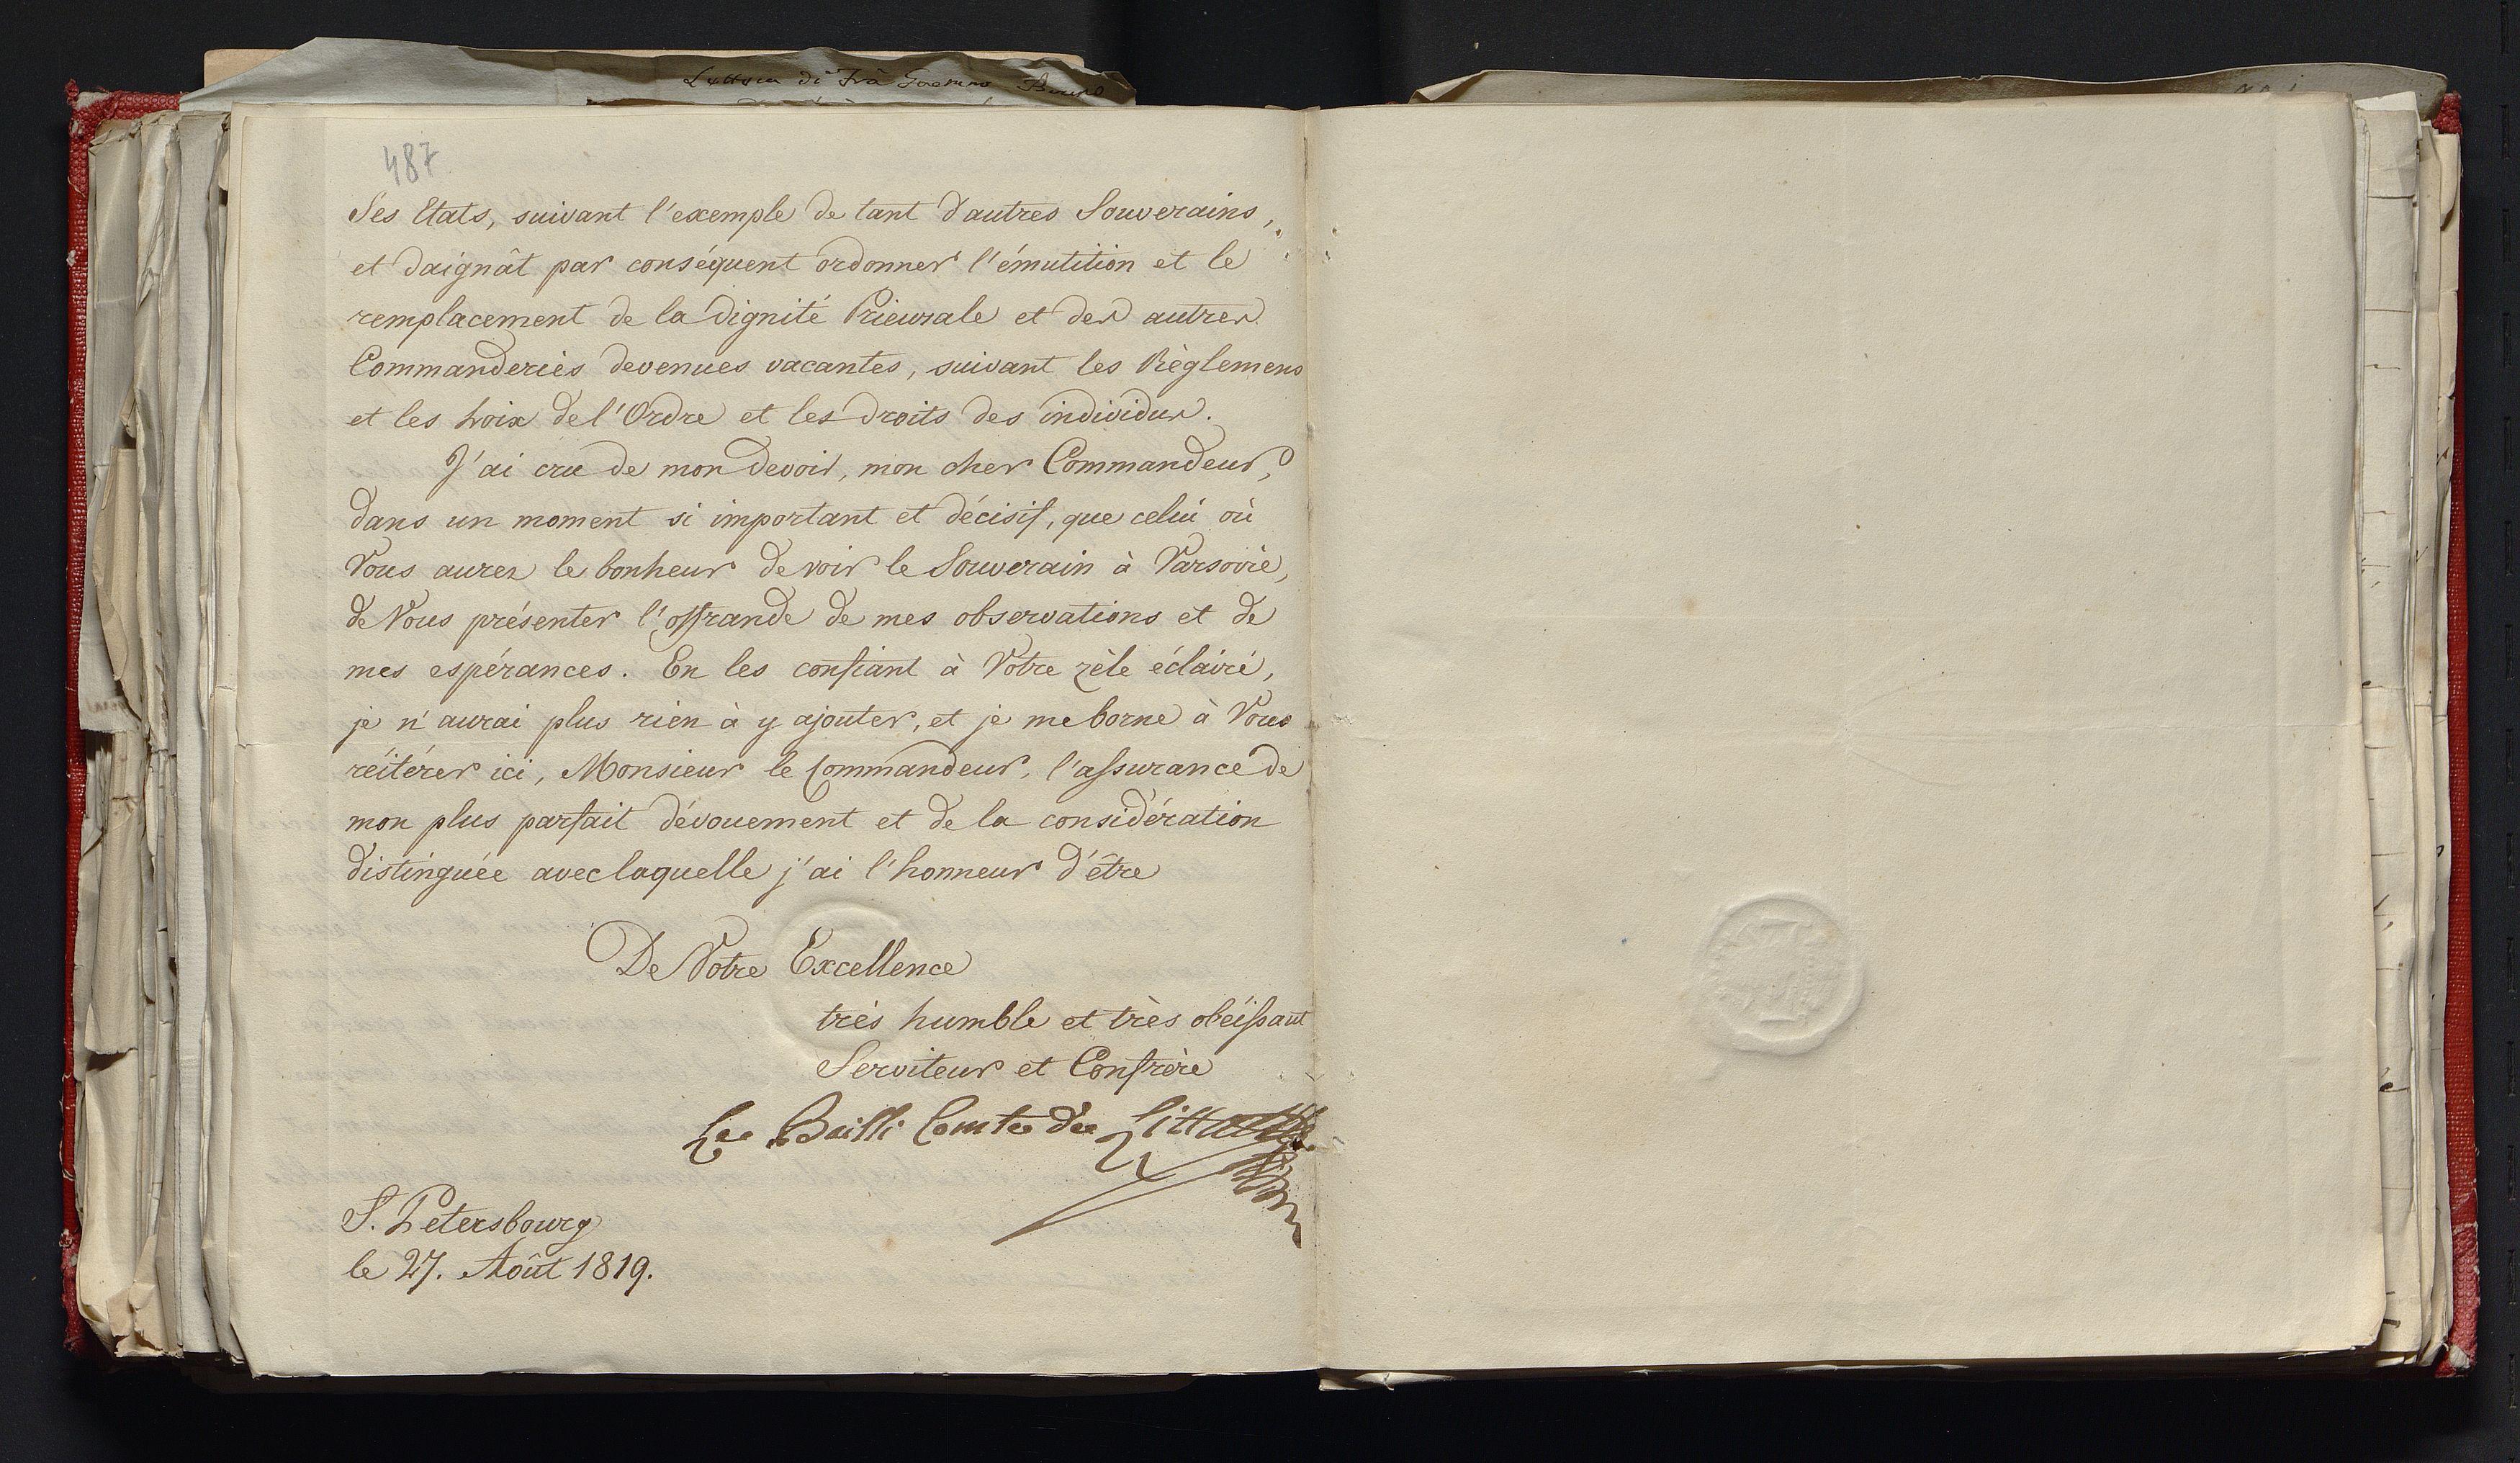 Lettera di Frà Gaetano Bruno
487
Ses Etats, suivant l'exemple de tant d'autres Souverains,
et daignât par conséquent ordonner l'émutition et le
remplacement de la dignité Prieurale et des autres
Commanderies devenues vacantes, suivant les Règlemens
et les Loix de l'Ordre et les droits des individus.
J'ai cru de mon devoir, mon cher Commandeur,
dans un moment si important et décisif, que celui où
Vous aurez le bonheur de voir le Souverain à Varsovie,
de Vous présenter l'offrande de mes observations et de
mes espérances. En les confiant à Votre zèle éclairé,
je n'aurai plus rien à y ajouter, et je me borne à Vous
réitérer ici, Monsieur le Commandeur, l'assurance de
mon plus parfait dévouement et de la considération
distinguée avec laquelle j'ai l'honneur d'être
De Votre Excellence
très humble et très obéissant
Serviteur et Confrère
Le Bailli Comte de Litta
S. Petersbourg
le 27. Août 1819.